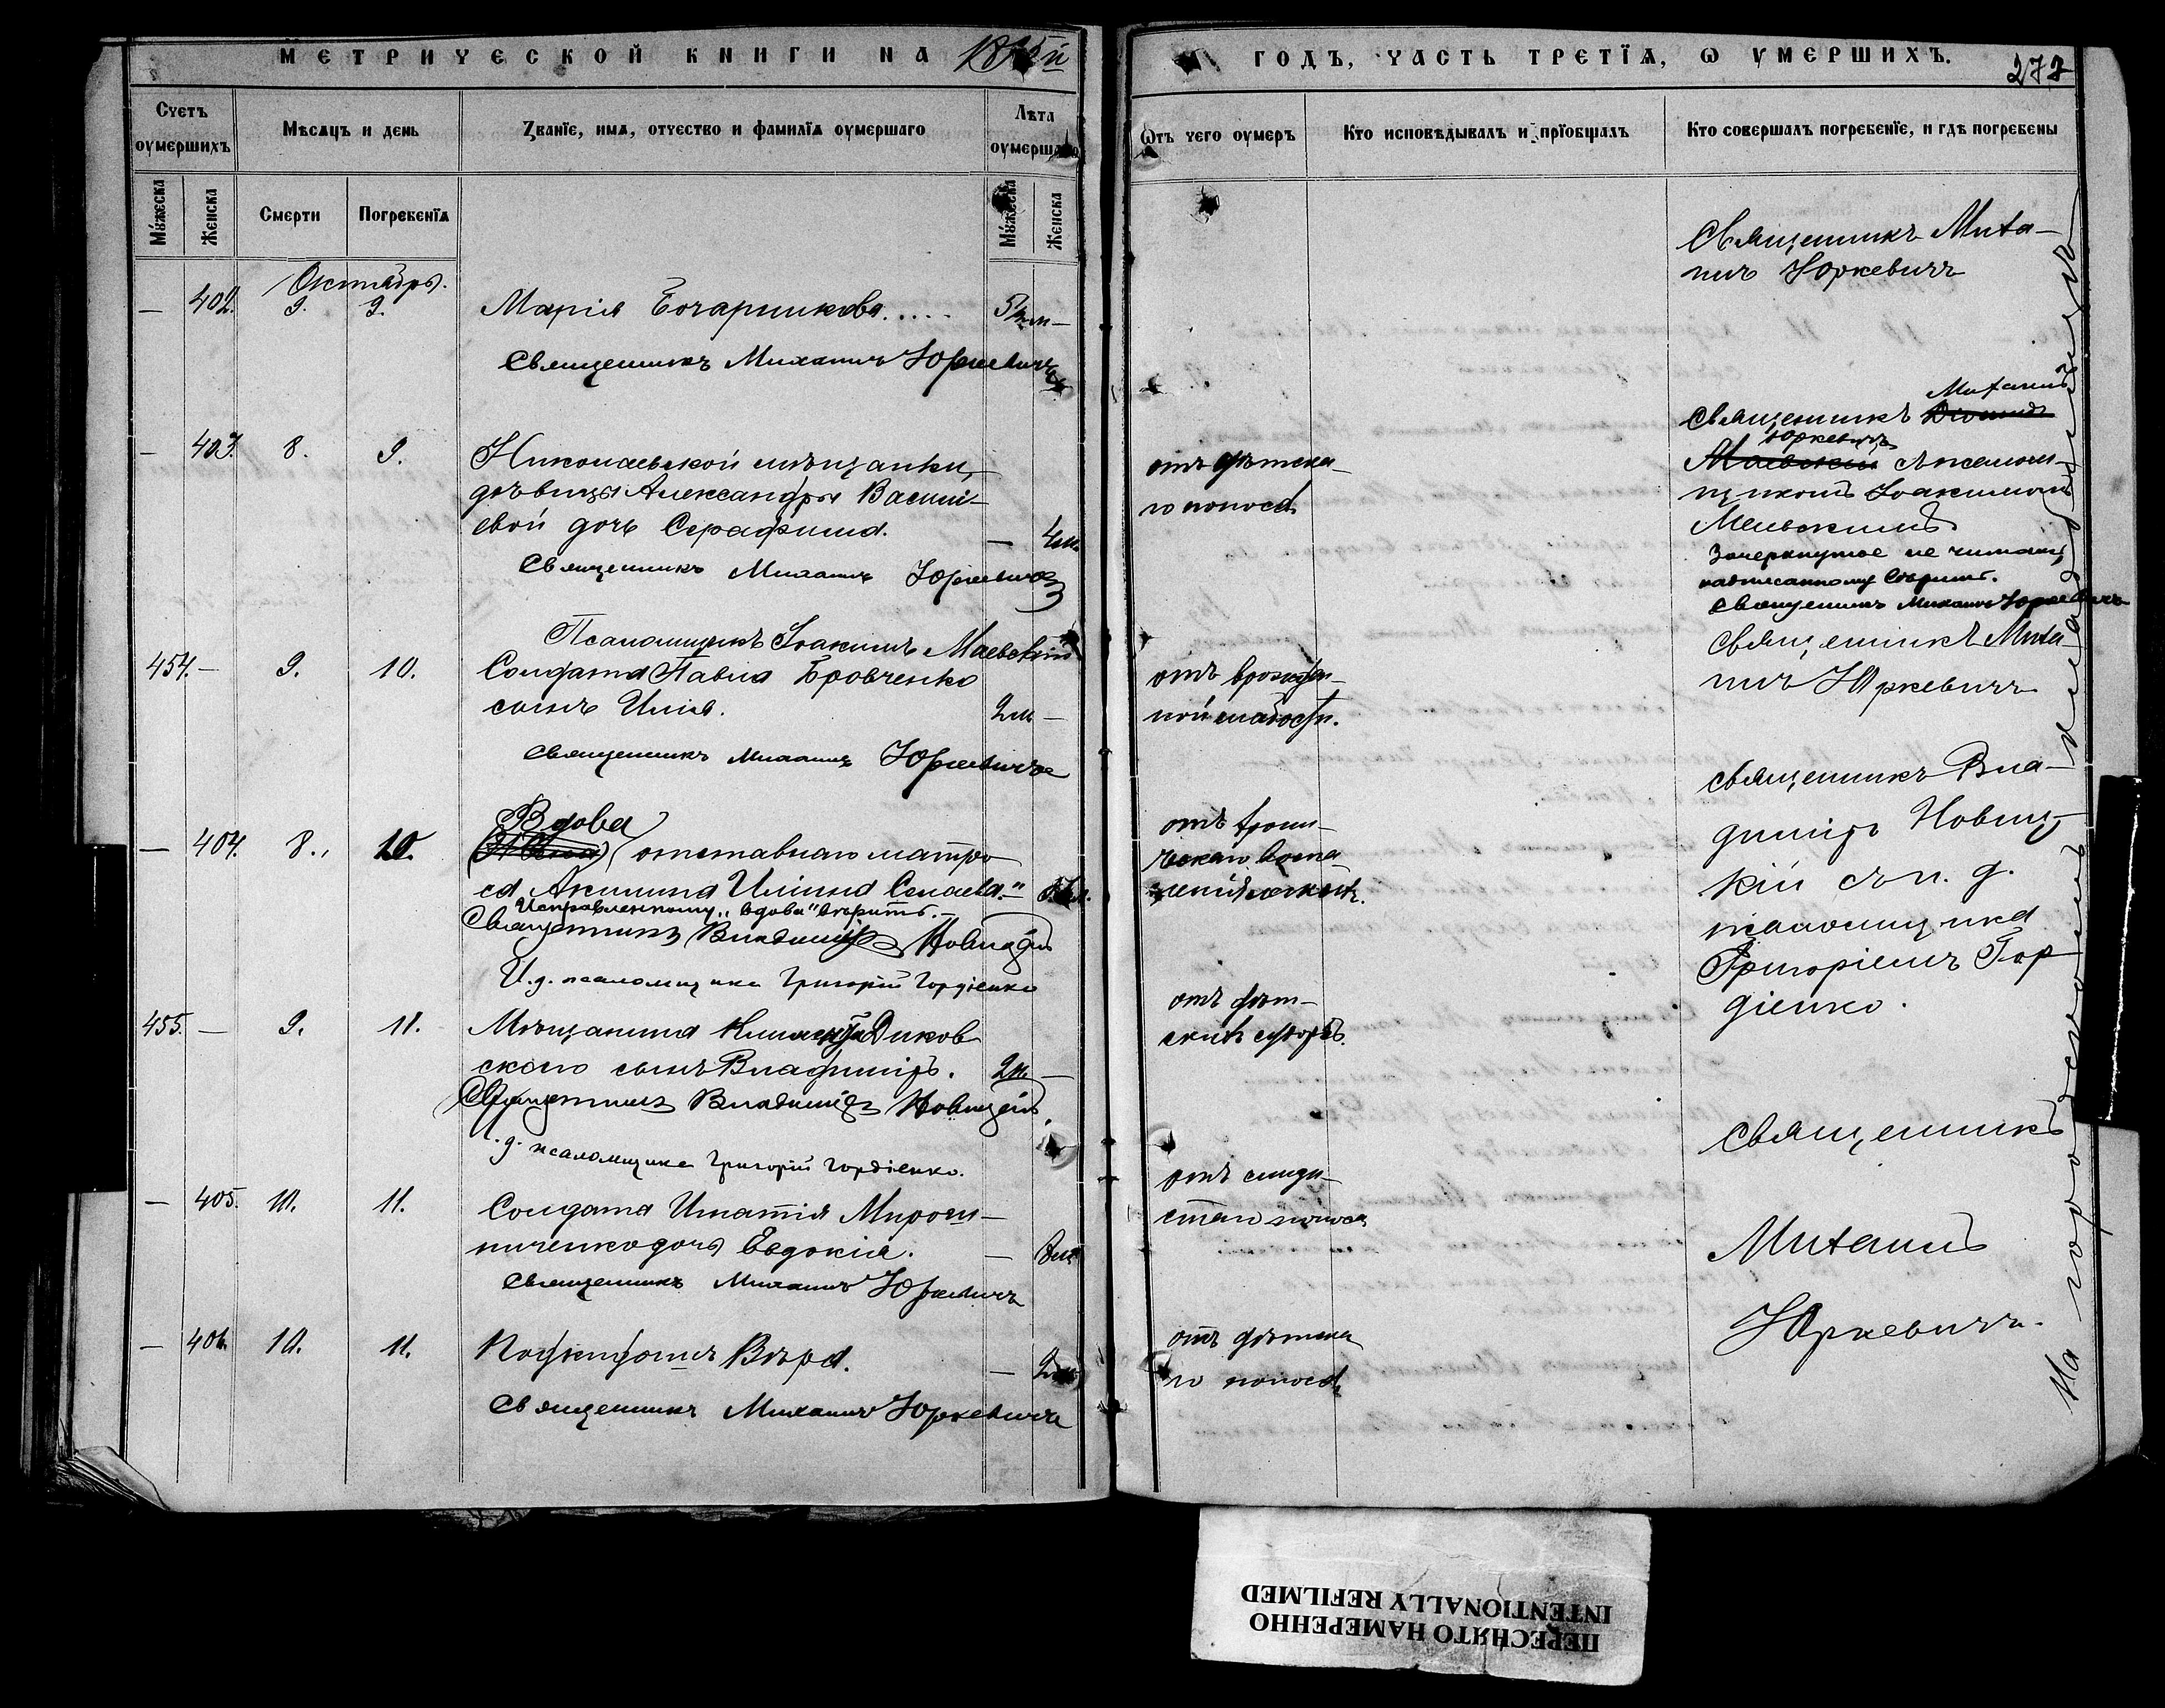 МЕТРИЧЕСКОЙ КНИГИ НА
ГОДЪ, ЧАСТЬ ТРЕТЇѦ, Ѡ УМЕРШИХЪ.
277
Счетъ оумершихъ
Мѣсѧцъ и день
Званїе, имѧ, отчество и фамилїѧ оумершаго
Лѣта оумершаго
Ѿтъ чего оумеръ
Кто исповѣдывалъ и прїобщалъ
Кто совершалъ погребенїе, и гдѣ погребены
Мужеска
Женска
Смерти
Погребенїѧ
Мужеска
Женска
Октябрь.
— 402. 9. 9.
Марія Бочарникова.....
Священникъ Михаилъ Юркевичъ
Священникъ Миха-
илъ Юркевичъ
— 403. 8. 9.
Николаевской мѣщанки,
дѣвицы Александры Васил-
евой дочь Серафима.
— 4 м.
Священникъ Михаилъ Юркевичъ
Псаломщикъ Іоакимъ Маевскій
отъ дѣтска-
го поноса
Михаилъ
Священникъ
Юркевичъ
Маевскій съ псалом-
щикомъ Іоакимомъ
Маевскимъ
Зачеркнутое не читать,
надписанному вѣрить.
Священникъ Михаилъ Юркевичъ
454. — 9. 10.
Солдата Павла Бровченко
сынъ Илія.
2 м —
Священникъ Михаилъ Юркевичъ
отъ врожден-
ной слабости.
Священникъ Миха-
илъ Юркевичъ
— 404. 8. 10.
Вдова
отставнаго матро-
са Акилина Иліина Сепаева."
Исправленному "вдова" вѣрить.—
Священникъ Владиміръ Новицкій
И. д. псаломщика Григорій Гордіенко
отъ хрони-
ческаго воспа-
ленія легкихъ.
Священникъ Вла-
диміръ Новиц-
кій съ и. д.
псаломщика
Григоріемъ Гор-
діенко.
455. — 9. 11.
Мѣщанина Климента Диков
скаго сынъ Владиміръ.
2 м. —
Священникъ Владиміръ Новицкій
И. д. псаломщика Григорій Гордіенко.
отъ дѣт-
скихъ судорогъ.
— 405. 10. 11.
Солдата Игнатія Мирош-
ниченко дочь Евдокія.
—
Священникъ Михаилъ Юркевичъ
отъ слизи-
стаго поноса
Священникъ
Михаилъ
Юркевичъ.
— 406. 10. 11.
Подкидышъ Вѣра.
—
Священникъ Михаилъ Юркевичъ
отъ дѣтска
го поноса
На городскомъ кладбищѣ
ПЕРЕСНЯТО НАМЕРЕННО
INTENTIONALLY REFILMED